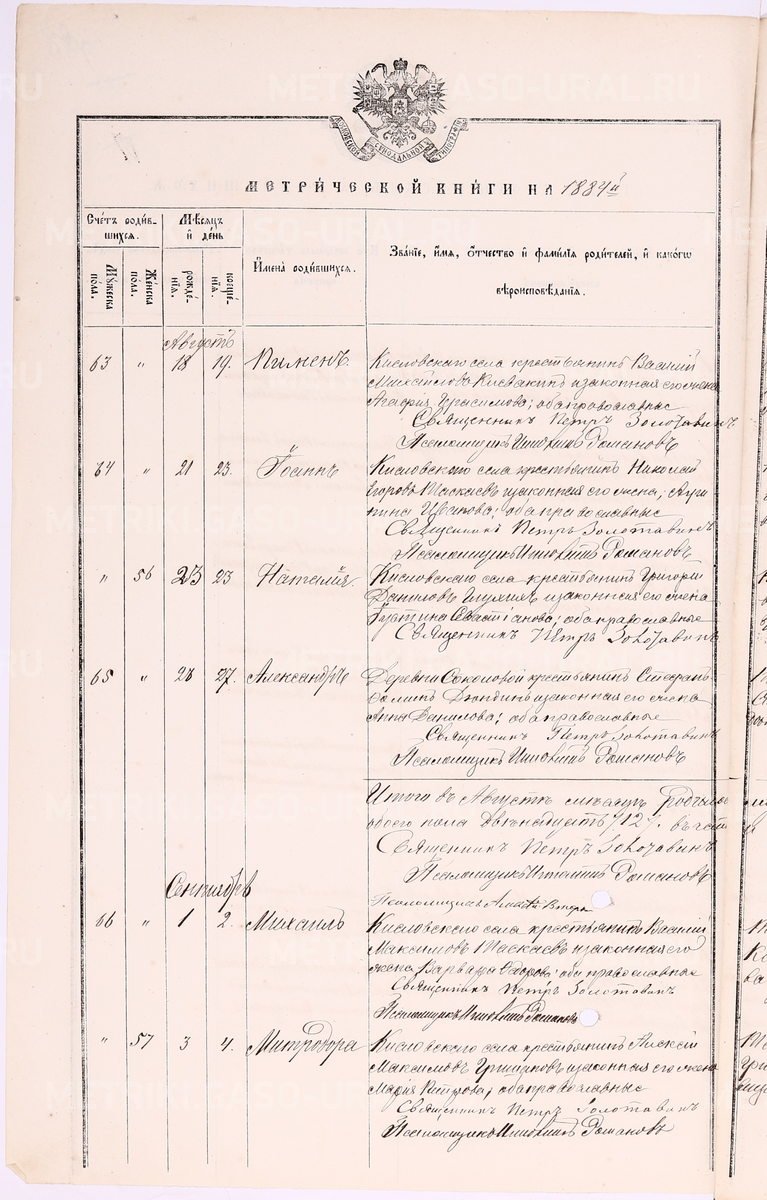 МОСКОВСКОЙ СѴНОДАЛЬНОЙ ТИПОГРАФІИ
МЕТРИЧЕСКОЙ КНИГИ НА 1884й
Счетъ родив-
шихся.
Мѣсяцъ
и день
Имена родившихся.
Званіе, имя, отчество и фамилія родителей, и какого
вѣроисповѣданія.
Мужеска
пола.
Женска
пола.
рожде-
нія.
креще-
нія.
Августъ
63 " 18 19. Пименъ. Кисловскаго села крестьянинъ Василій
Михайловъ и законная его жена
Агафія Герасимова; оба православные
Священникъ Петръ Золотавинъ
Псаломщикъ Романовъ
64 " 21 23. Іоаннъ Кисловскаго села крестьянинъ Николай
Егоровъ Таскаевъ и законная его жена;
Иванова; оба православные
Священникъ Петръ Золотавинъ
Псаломщикъ Романовъ
" 56 23 23 Наталія. Кисловскаго села крестьянинъ Григорій
Даниловъ и законная его жена
Севастіанова; оба православные
Священникъ Петръ Золотавинъ
65 " 26 27. Александръ Деревни Соколовой крестьянинъ Стефанъ
и законная его жена
Анна Данилова; оба православные
Священникъ Петръ Золотавинъ
Псаломщикъ Романовъ
Итого въ Августѣ мѣсяцѣ
обоего пола двѣнадцать /12/.
Священникъ Петръ Золотавинъ
Псаломщикъ Романовъ
Сентябрь
Псаломщикъ
66 " 1 2. Михаилъ Кисловскаго села крестьянинъ Василій
Максимовъ Таскаевъ и законная его
жена Варвара; оба православные
Священникъ Петръ Золотавинъ
Псаломщикъ Романовъ
" 57 3 4. Митродора Кисловскаго села крестьянинъ Алексій
Максимовъ и законная его жена
Марія Петрова; оба православные
Священникъ Петръ Золотавинъ
Псаломщикъ Романовъ